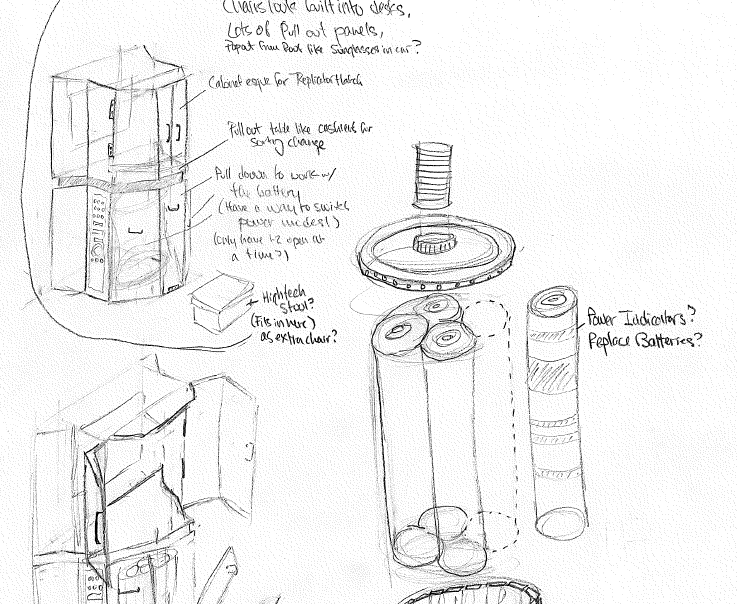 Chairs look built into desks,
Lots of Pull out panels,
Popout from Roof like Sunglasses in car?
Cabinet esque for Replicator Hatch
Pull out table like cashiers for
sorting change
Pull down to work w/
the battery
(Have a way to switch
power modes!)
(only have 1-2 open at
a time?)
Hightech
stool?
(Fits in here)
as extra chair?
Power Indicators?
Replace Batteries?